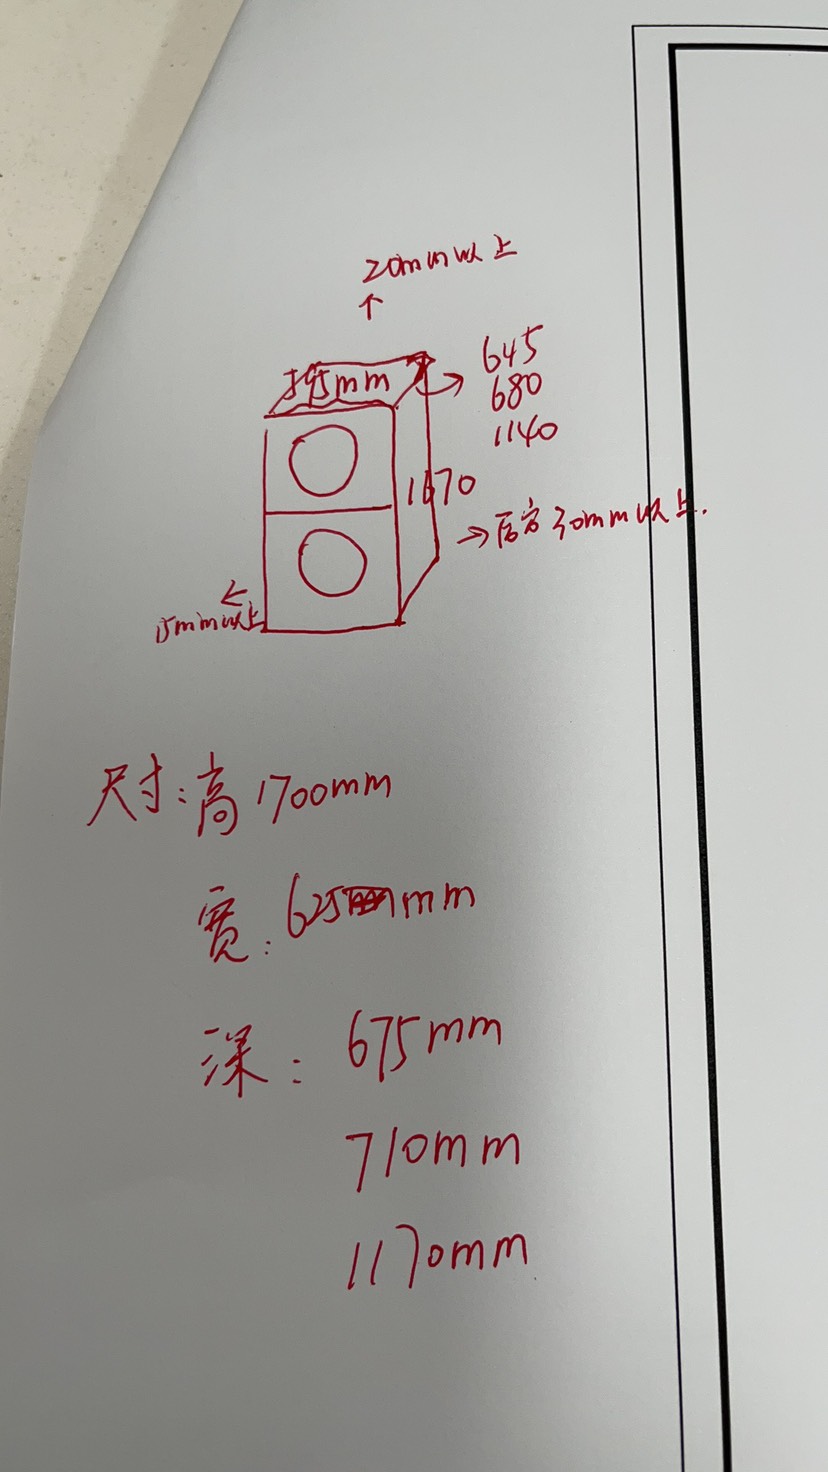 20mm以上
↑
595mm
645
680
1140
1670
→后方30mm以上.
←
15mm以上
尺寸:高1700mm
宽:625mm
深:675mm
710mm
1170mm